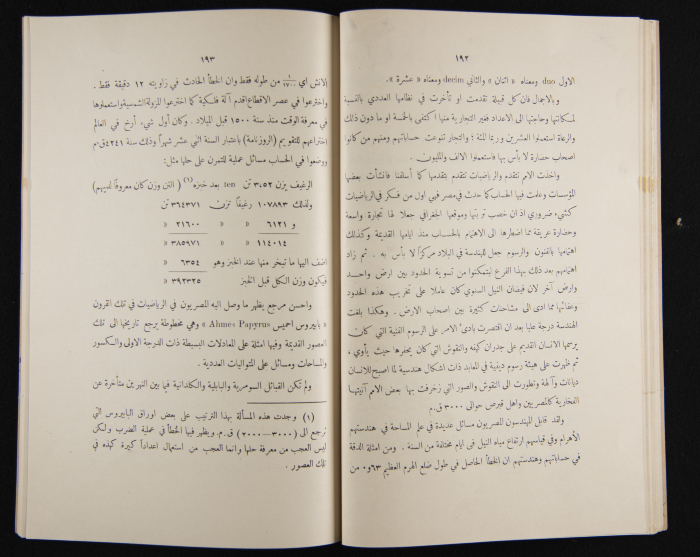 ١٩٢
الاول duo ومعناه « اثنان » والثاني decim ومعناه « عشرة ».
وبالاجمال فان كل قبيلة تقدمت او تأخرت في نظامها العددي بالنسبة
لمسكانها وحاجتها الى الاعداد فغير التجارية منها اكتفى بالخمسة او ما دون ذلك
والرعاة استعملوا العشرين وربما المئة ؛ والتجار تنوعت حساباتهم ومنهم من كانوا
اصحاب حضارة لا بأس بها فاستعملوا الالف والمليون .
واخذت الامم تتقدم والرياضيات تتقدم بتقدمها كما أسلفنا فانشأت بعضها
المؤسسات وعلمت فيها الحساب كما حدث في مصر فهي اول من فكر في الرياضيات
كشيء ضروري اذ ان خصب تربتها وموقعها الجغرافي جعلا لها تجارة واسعة
وحضارة عريقة مما اضطرها الى الاهتمام بالحساب منذ ايامها القديمة وكذلك
اهتمامها بالفنون والرسوم جعل للهندسة في البلاد مركزاً لا بأس به . ثم زاد
اهتمامهم بعد ذلك بهذا الفرع ليتمكنوا من تسوية الحدود بين ارض واحد
وارض آخر لان فيضان النيل السنوي كان عاملا على تخريب هذه الحدود
وعفائها مما ادى الى مشاحنات كثيرة بين اصحاب الارض . وهكذا بلغت
الهندسة درجة عليا بعد ان اقتصرت بادئ الامر على الرسوم الفنية التي كان
يرسمها الانسان القديم على جدران كهفه والنقوش التي كان يحفرها حيث يأوي ،
ثم ظهرت على هيئة رسوم دينية في المعابد ذات اشكال هندسية لما اصبح للانسان
ديانات وآلهة وتطورت الى النقوش والصور التي زخرفت بها بعض الامم آنيتها
الفخارية كالمصريين واهل قبرص حوالى ٣٠٠٠ ق.م
ولقد قابل المهندسون المصريون مسائل عديدة في علم المساحة في هندستهم
الأهرام وفي قياسهم ارتفاع مياه النيل في ايام مختلفة من السنة . ومن امثلة الدقة
في حساباتهم وهندستهم ان الخطأ الحاصل في طول ضلع الهرم العظيم ٠٫٦٣ من
١٩٣
الانش اي ١/١٧٠٠٠ من طوله فقط وان الخطأ الحادث في زاويته ١٢ دقيقة فقط .
واخترعوا في عصر الاقطاع اقدم آلة فلكية كما اخترعوا المزولة الشمسية واستعملوها
في معرفة الوقت منذ سنة ١٥٠٠ قبل الميلاد . وكان أول شيء أرخ في العالم
اختراعهم للتقويم (الروزنامة) باعتبار السنة اثني عشر شهراً وذلك سنة ٤٢٤١ ق.م
ووضعوا في الحساب مسائل عملية للتمرن على حلها مثل:
الرغيف يزن ٣٫٥٢ تن ten بعد خبزه (١) ( التن وزن كان معروفاً لديهم )
ولذلك ١٠٧٨٩٣ رغيفاً تزن ٣٦٤٣٧١ تن
و ٦١٢١ « « ٢١٦٠٠ «
١١٤٠١٤ « « ٣٨٥٩٧١ «
اضف اليها ما تبخر منها عند الخبز وهو ٦٣٥٤ «
فيكون وزن الكل قبل الخبز ٣٩٢٣٢٥ «
واحسن مرجع يظهر ما وصل اليه المصريون في الرياضيات في تلك القرون
« بابيروس احميس Ahmes Papyrus » وهي مخطوطة يرجع تاريخها الى تلك
العصور القديمة وفيها امثلة على المعادلات البسيطة ذات الدرجة الاولى والكسور
والمساحات ومسائل على المتواليات العددية .
ولم تكن القبائل السومرية والبابلية والكلدانية فيما بين النهرين متأخرة عن
(١) وجدت هذه المسألة بهذا الترتيب على بعض اوراق البابيروس التي
ترجع الى (٣٠٠٠ — ٢٠٠٠) ق.م. ويظهر فيها الخطأ في عملية الضرب ولكن
ليس العجب من معرفة حلها وانما العجب من استعمال اعداداً كبيرة كهذه في
تلك العصور .